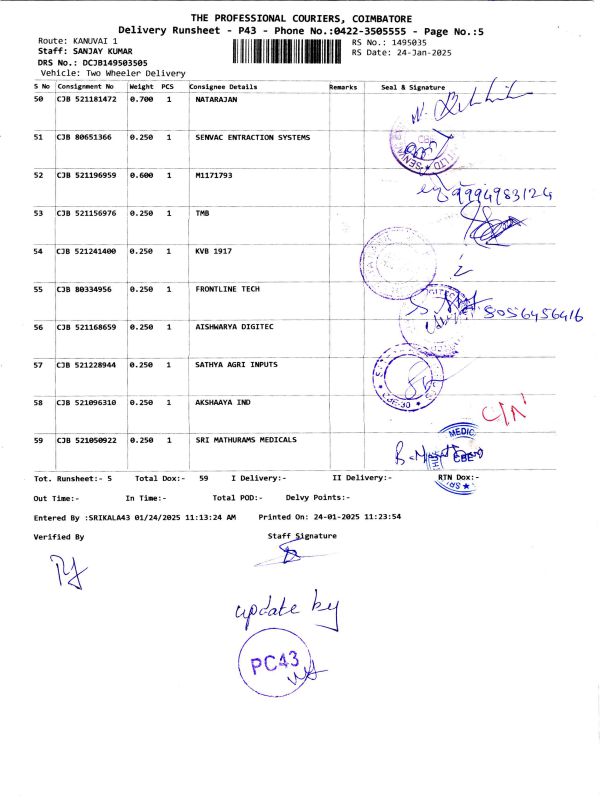 THE PROFESSIONAL COURIERS, COIMBATORE
Delivery Runsheet - P43 - Phone No.:0422-3505555 - Page No.:5
Route: KANUVAI 1 RS No.: 1495035
Staff: SANJAY KUMAR RS Date: 24-Jan-2025
DRS No.: DCJB149503505
Vehicle: Two Wheeler Delivery
S No Consignment No Weight PCS Consignee Details Remarks Seal & Signature
50 CJB 521181472 0.700 1 NATARAJAN
51 CJB 80651366 0.250 1 SENVAC ENTRACTION SYSTEMS
52 CJB 521196959 0.600 1 M1171793
9994983124
53 CJB 521156976 0.250 1 TMB
54 CJB 521241400 0.250 1 KVB 1917
55 CJB 80334956 0.250 1 FRONTLINE TECH
8056456416
56 CJB 521168659 0.250 1 AISHWARYA DIGITEC
57 CJB 521228944 0.250 1 SATHYA AGRI INPUTS
58 CJB 521096310 0.250 1 AKSHAAYA IND
59 CJB 521050922 0.250 1 SRI MATHURAMS MEDICALS
MEDIC
CBE
Tot. Runsheet:- 5 Total Dox:- 59 I Delivery:- II Delivery:- RTN Dox:-
Out Time:- In Time:- Total POD:- Delvy Points:-
Entered By :SRIKALA43 01/24/2025 11:13:24 AM Printed On: 24-01-2025 11:23:54
Verified By Staff Signature
update by
PC43